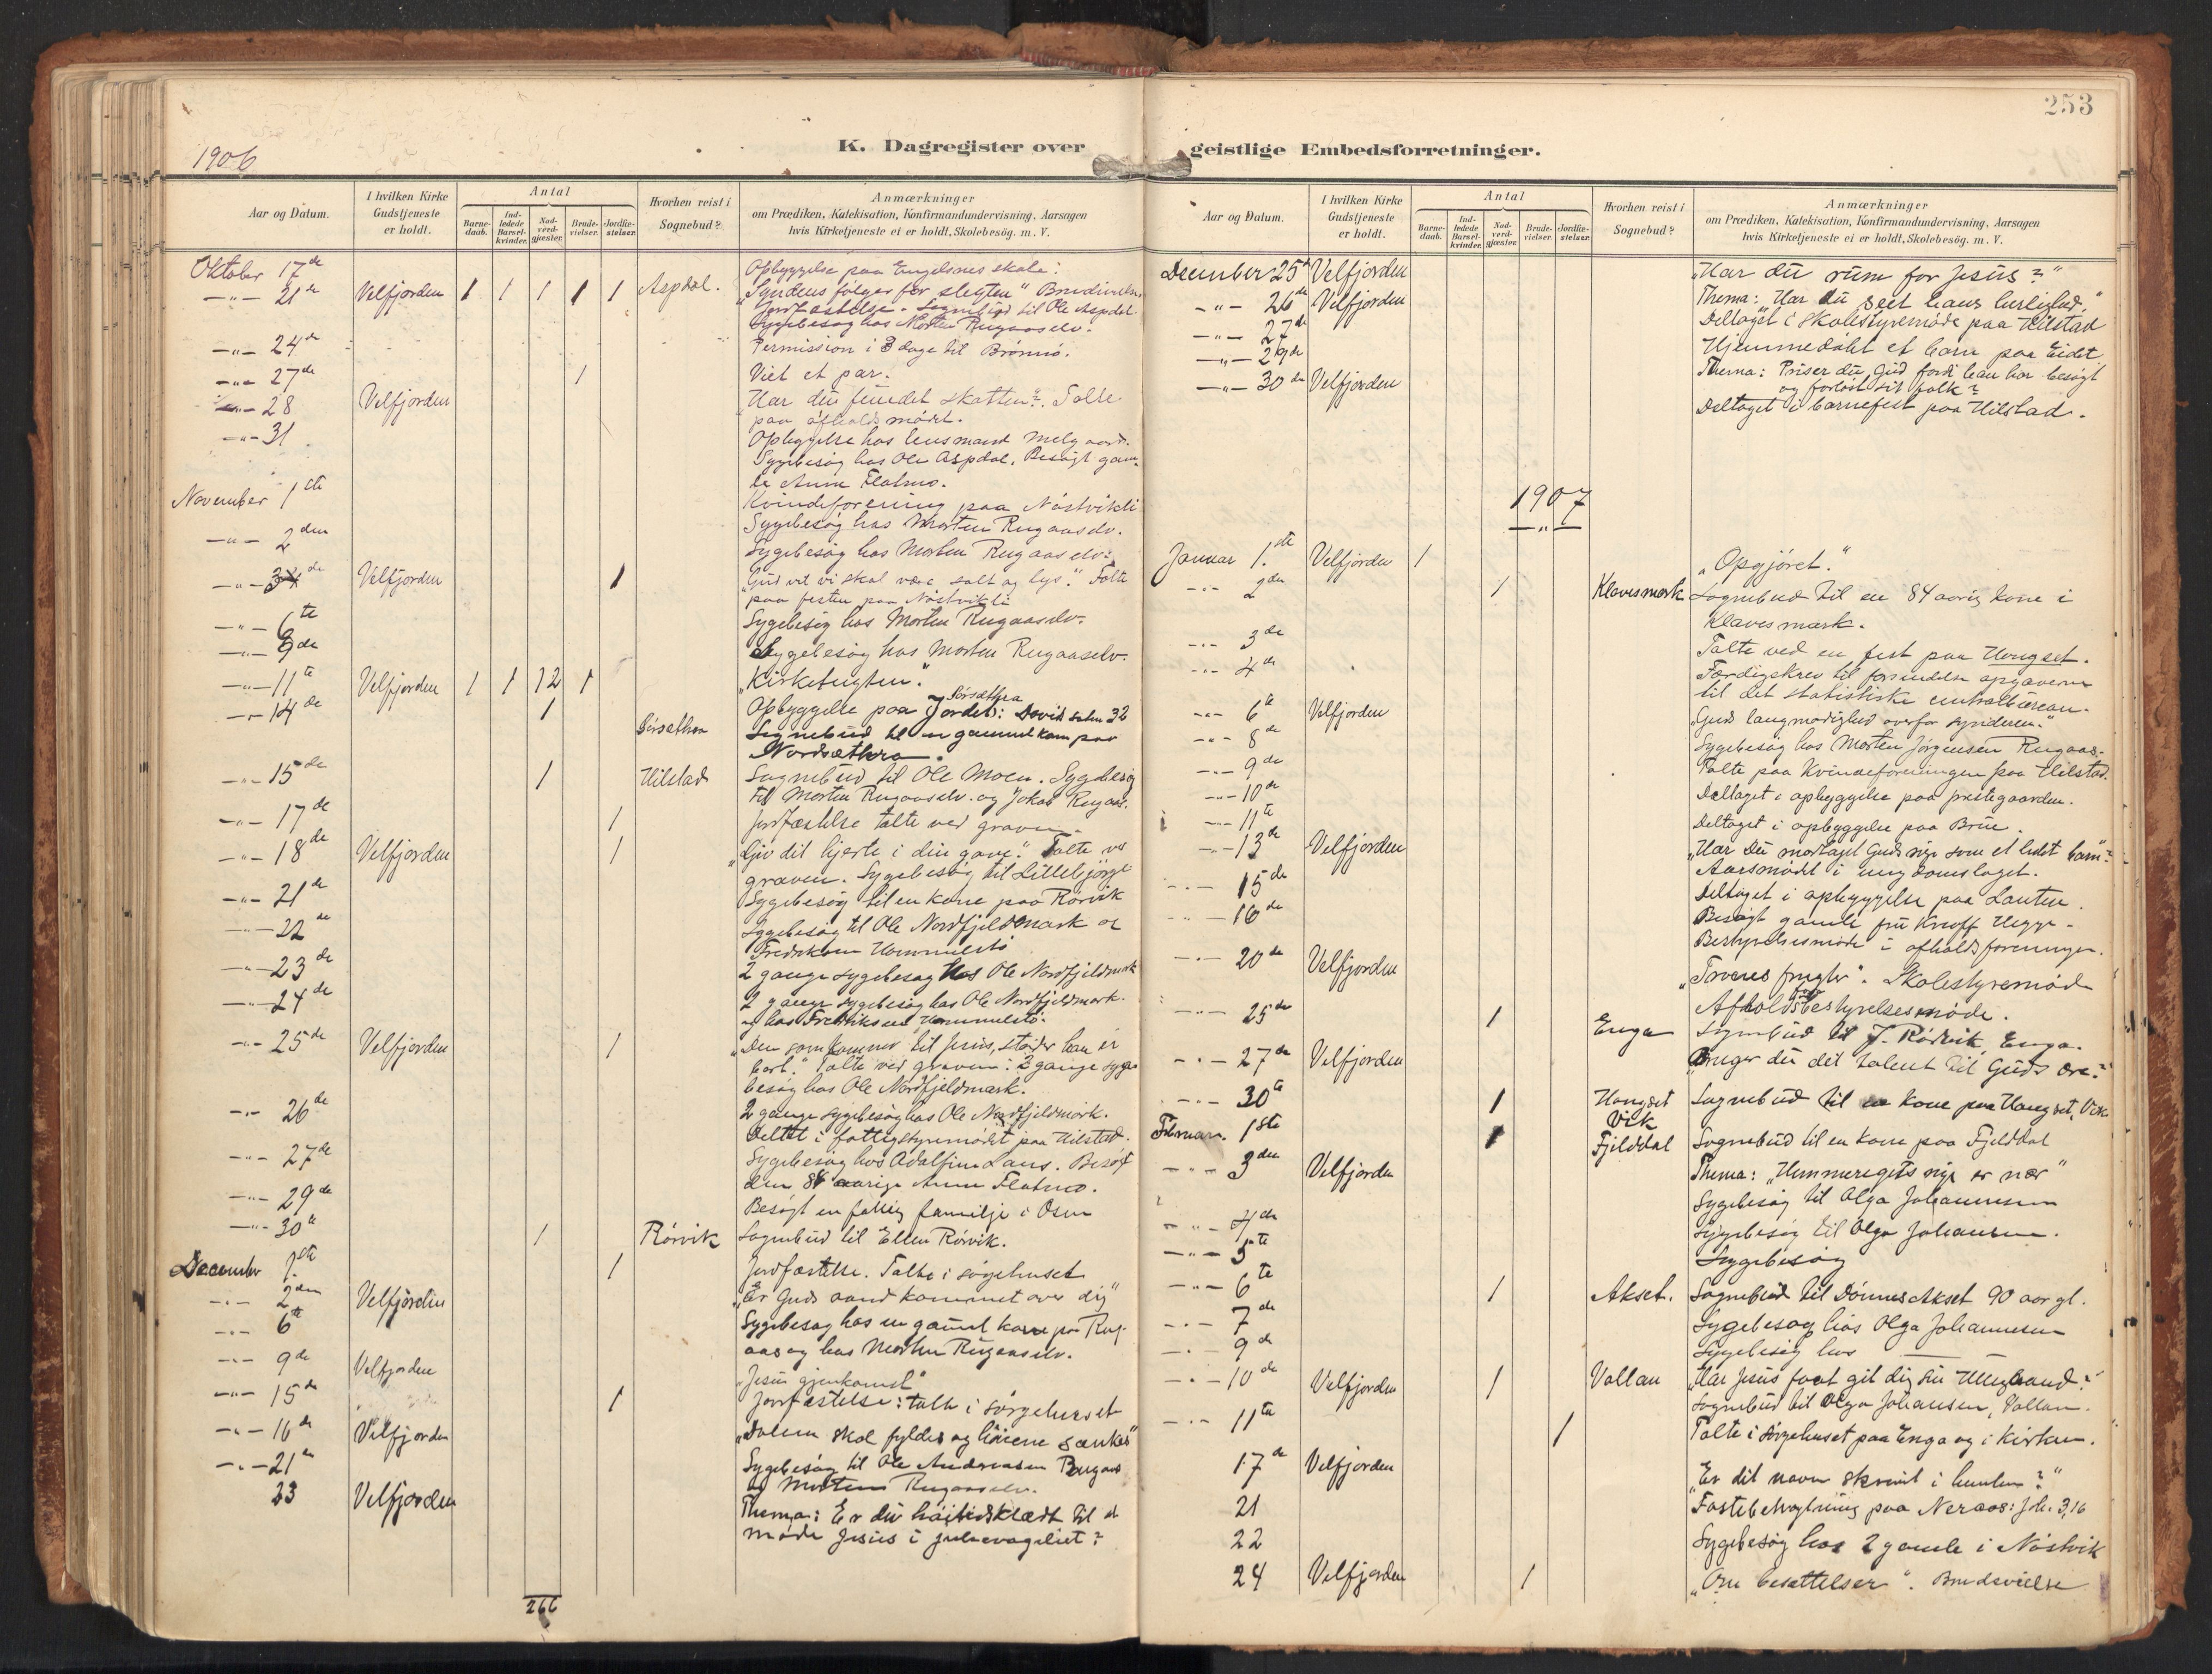 253
K. Dagregister over geistlige Embedsforretninger.
1906
Aar og Datum.
I hvilken Kirke Gudstjeneste er holdt.
Antal
Barne-daab.
Ind-ledede Barsel-kvinder.
Nad-verd-gjæster.
Brude-vielser.
Jordfæ-stelser.
Hvorhen reist i Sognebud?
Anmærkninger
om Prædiken, Katekisation, Konfirmandundervisning, Aarsagen
hvis Kirketjeneste ei er holdt, Skolebesög. m. V.
Oktober 17de Opbyggelse paa Engelsnes skole.
—"— 21de Velfjorden 1 1 1 1 1 Aspdal. "Syndens følger for slegten" Brudivielse
Jordfæstelse. Sognebud til Ole Aspdal
Sygebesøg hos Morten Rugaaselv.
—"— 24de Permission i 8 dage til Brönnö.
—"— 27de 1 Viet et par.
—"— 28 Velfjorden "Har du fundet skatten?" Talte
paa afholdsmödet.
—"— 31 Opbyggelse hos lensmand Melgaard.
Sygebesög hos Ole Aspdal. Besögt gam-
le Anne Flatmo.
November 1ste Kvindeforening paa Nöstvikli
Sygebesög hos Morten Rugaaselv.
—"— 2den Sygebesög hos Morten Rugaaselv.
—"— 3de Velfjorden 1 "Gud vil vi skal være salt og lys." Talte
paa festen paa Nöstvikli
—"— 6te Sygebesög hos Morten Rugaaselv.
—"— 9de Sygebesög hos Morten Rugaaselv.
—"— 11te Velfjorden 1 1 12 1 "Kirketugten".
—"— 14de 1 Opbyggelse paa Jordet: David salm 32
Sörsæthra
Sörsæthra Sognebud til en gammel kone paa
Nordsæthra.
—"— 15de 1 Hilstad Sognebud til Ole Moen. Sygebesög
til Morten Rugaaselv. og Jokob Rugaas.
—"— 17de 1 Jordfæstelse talte ved graven.
—"— 18de Velfjorden 1 "Giv dit hjerte i din gave." Talte ved
graven. Sygebesög til Lillebjörge
—"— 21de Sygebesög til en kone paa Rörvik
—"— 22de Sygebesög til Ole Nordfjeldmark og
Fredriksen Hommelstö
—"— 23de 2 gange sygebesög hos Ole Nordfjeldmark
—"— 24de 2 gange sygebesög hos Ole Nordfjeldmark.
og hos Fredriksen Hommelstö.
—"— 25de Velfjorden 1 "Den som kommer til Jesus, støder han ei
bort." Talte ved graven: 2 gange syge-
besög hos Ole Nordfjeldmark.
—"— 26de 2 gange sygebesög hos Ole Nordfjeldmark.
Deltat i fattigstyremödet paa Hilstad.
—"— 27de Sygebesög hos Adolfine Lans. Besögt
den 84 aarige Anne Flatmo.
—"— 29de Besögt en fattig familje i Osen
—"— 30te 1 Rörvik Sognebud til Ellen Rörvik.
December 1ste 1 Jordfæstelse. Talte i sörgehuset
—"— 2den Velfjorden "Er Guds aand kommet over dig"
—"— 6te Sygebesög hos en gammel kone paa Rug-
aas og hos Morten Rugaaselv.
—"— 9de Velfjorden "Jesu gjenkomst"
—"— 15de 1 Jordfæstelse: talte i sörgehuset
—"— 16de Velfjorden "Dalene skal fyldes og höiene sænkes"
—"— 21de Sygebesög til Ole Andreasen Rugaas
og Morten Rugaaselv.
23 Velfjorden Thema: Er du höitidsklædt til at
möde Jesus i juleevangeliet?
266
Aar og Datum.
I hvilken Kirke Gudstjeneste er holdt.
Antal
Barne-daab.
Ind-ledede Barsel-kvinder.
Nad-verd-gjæster.
Brude-vielser.
Jordfæ-stelser.
Hvorhen reist i Sognebud?
Anmærkninger
om Prædiken, Katekisation, Konfirmandundervisning, Aarsagen
hvis Kirketjeneste ei er holdt, Skolebesög. m. V.
December 25de Velfjorden "Har du rum for Jesus?"
—"— 26de Velfjorden Thema: "Har du seet hans herlighed."
—"— 27de Deltaget i skolestyremöde paa Hilstad
—"— 29de Hjemmedöbt et barn paa Eidet
—"— 30de Velfjorden Thema: Priser du Gud fordi han har besögt
og forlöst sit folk?
Deltaget i barnefest paa Hilstad.
1907
Januar 1ste Velfjorden 1 "Opgjöret."
—"— 2den 1 Klavesmark Sognebud til en 84 aarig kone i
Klavesmark.
—"— 3de Talte ved en fest paa Hongset.
—"— 4de Færdigskrev til forsendelse opgaverne
til det statistiske centralbureau.
—"— 6te Velfjorden "Guds langmodighed overfor synderen."
—"— 8de Sygebesög hos Morten Jörgensen Rugaas.
—"— 9de Talte paa Kvindeforeningen paa Hilstad.
—"— 10de Deltaget i opbyggelse paa prestegaarden.
—"— 11te Deltaget i opbyggelse paa Brue.
—"— 13de Velfjorden "Har du modtaget Guds rige som et lidet barn"?
Aarsmödet i ungdomslaget.
—"— 15de Deltaget i opbyggelse paa Lauten.
—"— 16de Besögt gamle fru Knoff Hegge.
Bestyrelsesmöde i afholdsforeningen.
—"— 20de Velfjorden "Troens frugter". Skolestyremöde
Afholdsbestyrelsesmöde.
—"— 25de 1 Enga Sognebud til J. Rödvik, Enga.
—"— 27de Velfjorden "Bruger du dit talent til Guds ære?"
—"— 30te 1 Hongset Vik Sognebud til en kone paa Hongset, Vik
Februar. 1ste 1 Fjelddal Sognebud til en kone paa Fjelddal
—"— 3den Velfjorden Thema: "Himmerigets rige er nær"
Sygebesög til Olga Johannesen
—"— 4de Sygebesög til Olga Johansen.
—"— 5te Sygebesög
—"— 6te 1 Akset. Sognebud til Dönnes Akset 90 aar gl.
—"— 7de Sygebesög hos Olga Johannesen
—"— 9de Sygebesög hos — —
—"— 10de Velfjorden 1 Vollan "Har Jesus faat git dig sin Helligaand?"
Sognebud til Olga Johansen, Vollan.
—"— 11te 1 Talte i sörgehuset paa Enga og i kirken.
17de Velfjorden "Er dit navn skrevet i himlen?"
21 Fastebetragtning paa Neraas: Joh. 3,16
22 Sygebesög hos 2 gamle i Nöstvik
24 Velfjorden 1 "Om besættelser". Brudevielse